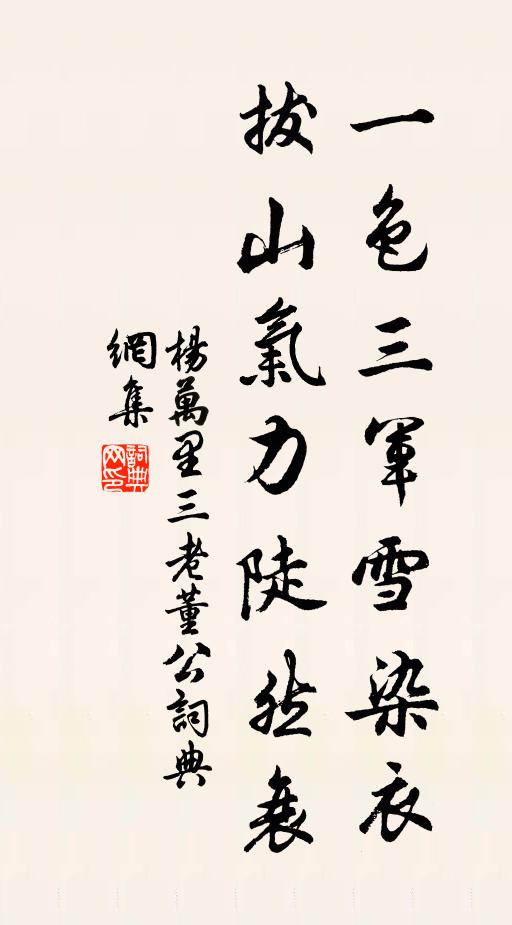 一色三軍雪染衣
拔山氣力陡然衰
楊萬里三老董公詞典
網集
詞典
网印